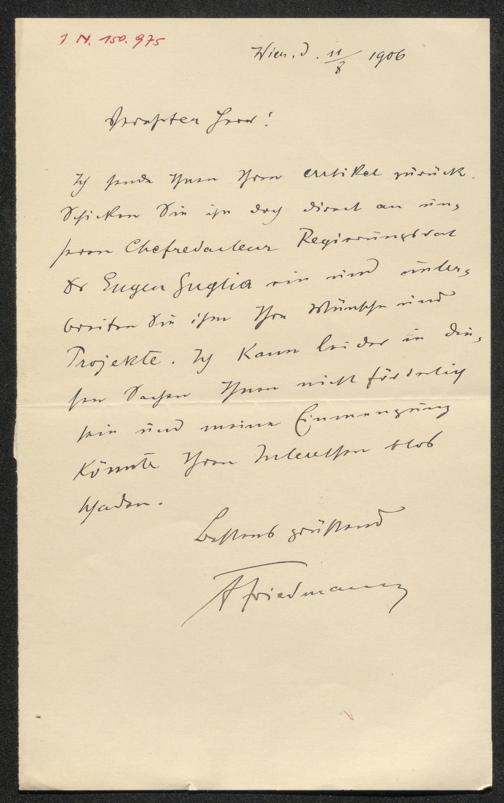 I N. 150.975
Wien, d. 11/8 1906
Verehrter Herr!
Ich sende Ihnen Ihren Artikel zurück.
Schicken Sie ihn doch direct an un-
seren Chefredacteur Regierungsrat
Dr Eugen Guglia ein und unter-
breiten Sie ihm Ihre Wünsche und
Projekte. Ich kann leider in die-
sen Sachen Ihnen nicht förderlich
sein und meine Einmengung
könnte Ihren Interessen blos
schaden.
Bestens grüßend
AFriedmann